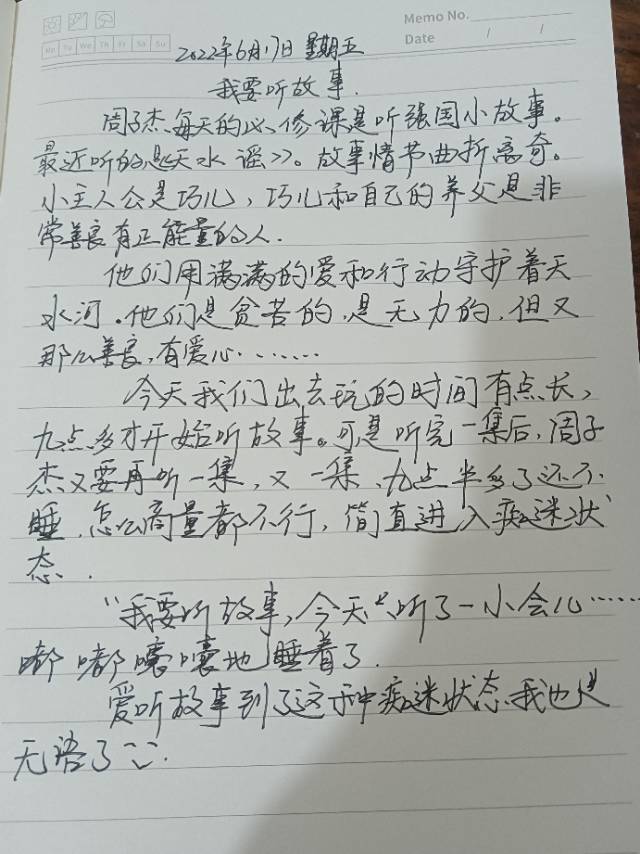 Memo No.
Date / /
Mo Tu We Th Fr Sa Su
2022年6月17日 星期五
我要听故事.
周子杰每天的必修课是听强国小故事。
最近听的是《天水谣》。故事情节曲折离奇。
小主人公是巧儿,巧儿和自己的养父是非
常善良有正能量的人.
他们用满满的爱和行动守护着天
水河.他们是贫苦的,是无力的,但又
那么善良,有爱心.……
今天我们出去玩的时间有点长,
九点多才开始听故事。可是听完一集后,周子
杰又要再听一集,又一集,九点半多了还不
睡,怎么商量都不行,简直进入痴迷状
态.
“我要听故事,今天才听了一小会儿……
嘟嘟囔囔地睡着了.
爱听故事到了这种痴迷状态,我也是
无语了